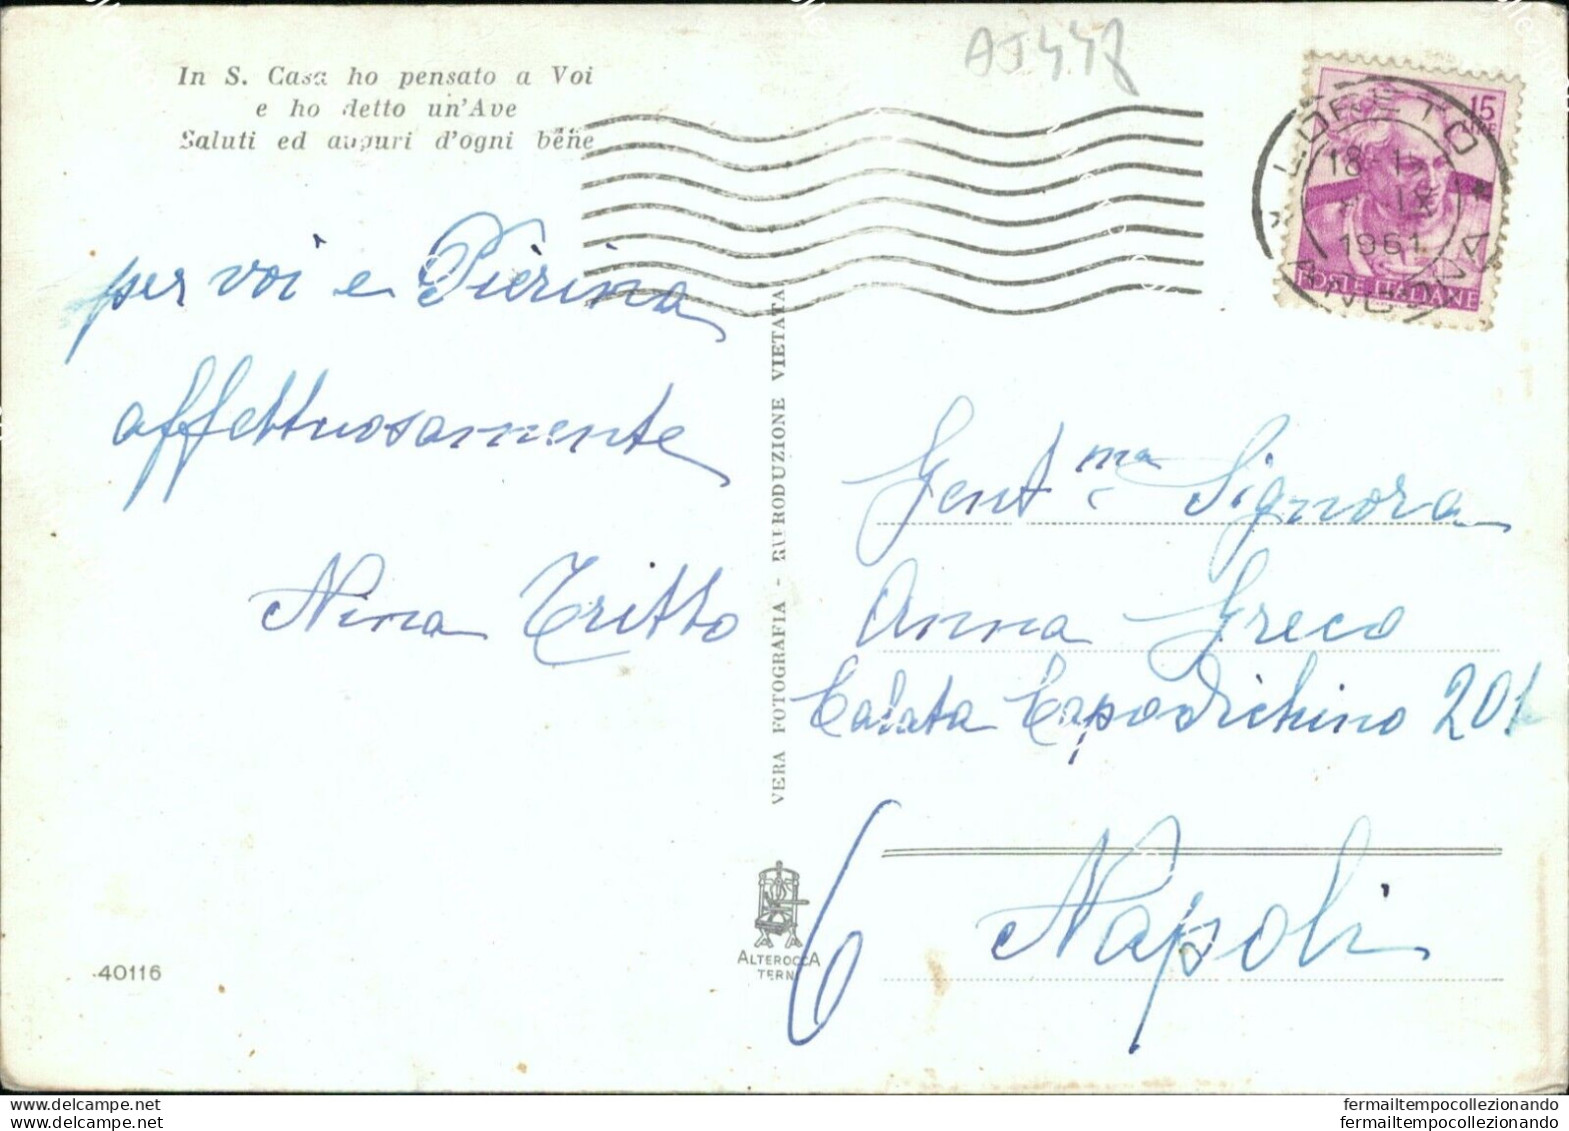 AJ448
In S. Casa ho pensato a Voi
e ho detto un'Ave
Saluti ed auguri d'ogni bene
15
LIRE
POSTE ITALIANE
LORETO
ANCONA
18
1961
per voi e Pierina
affettuosamente
Nina Tritto
VERA FOTOGRAFIA - RIPRODUZIONE VIETATA
Gent.ma Signora
Anna Greco
Calata Capodichino 201
6 Napoli
ALTEROCCA
TERNI
40116
www.delcampe.net
fermailtempocollezionando
www.delcampe.net
fermailtempocollezionando
fermailtempocollezionando
fermailtempocollezionando